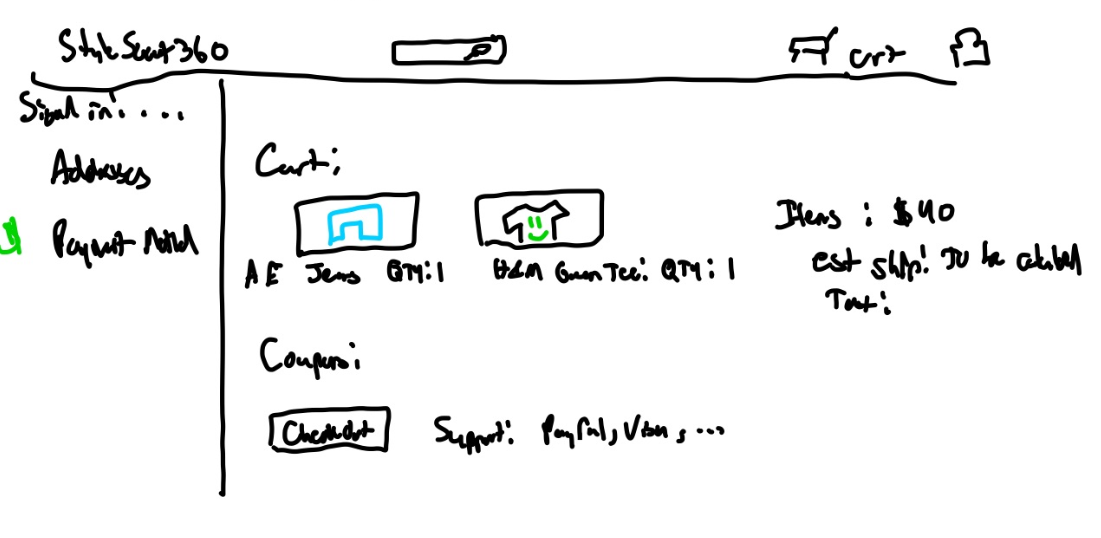 StyleScout360
Cart
Signed in: ....
Addresses
Payment Method
Cart:
AE Jeans QTY:1
H&M Green Tee: QTY:1
Items: $40
est ship: TO be
Tot:
Coupons:
Checkout
Support: PayPal, Visa, ...